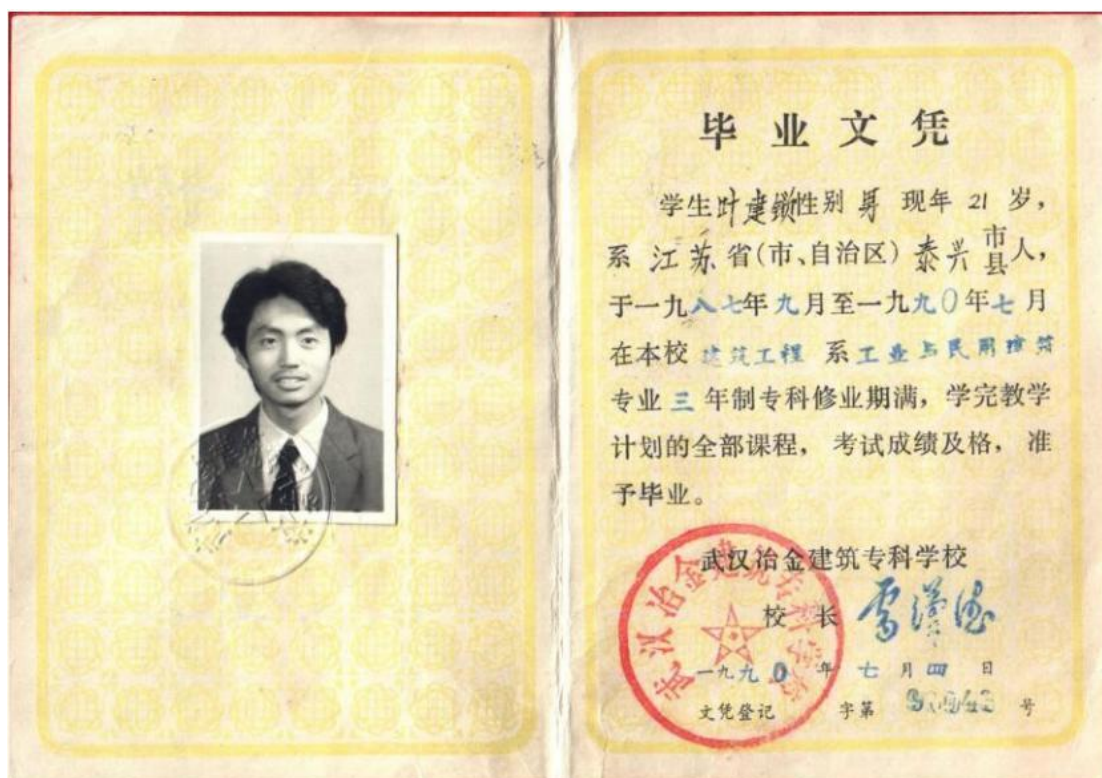 毕业文凭
学生叶建锁性别 男 现年 21 岁，
系 江苏 省(市、自治区) 泰兴 市县人，
于一九八七年九月至一九九0年七月
在本校 建筑工程 系 工业与民用建筑
专业 三 年制专科修业期满，学完教学
计划的全部课程， 考试成绩及格， 准
予毕业。
武汉冶金建筑专科学校
校 长
武汉冶金建筑专科学校
一九九0 年 七 月 四 日
文凭登记 字第 号